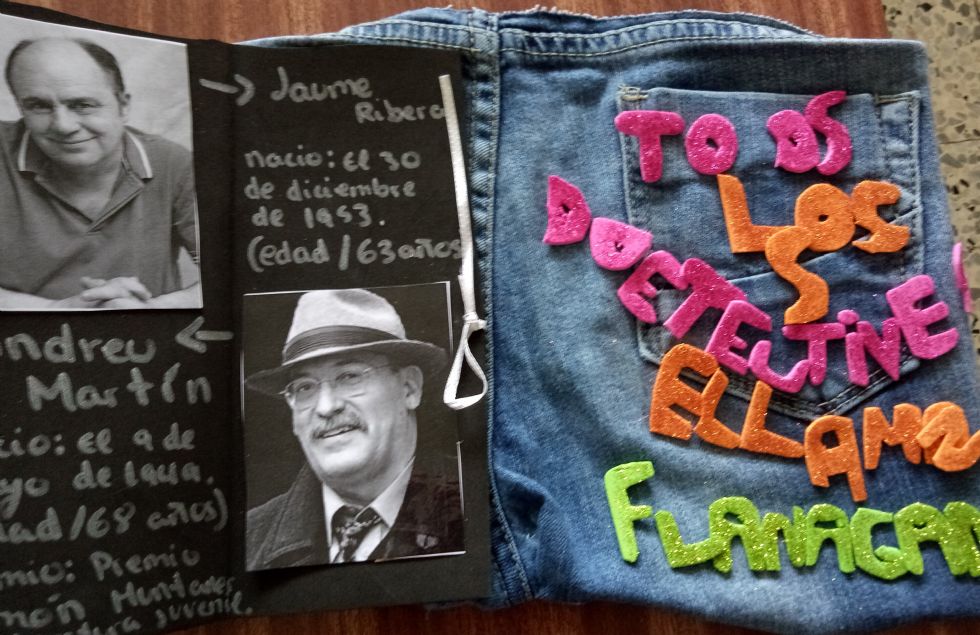 Jaume
Ribera
nacio: el 30
de diciembre
de 1953.
(edad/63 años
ndreu
Martín
cio: el 9 de
yo de 1949.
dad/68 años)
mio: Premio
món Muntaner
juvenil.
TODOS
LOS
DETECTIVE
S
E LLAMA
FLANAGAN